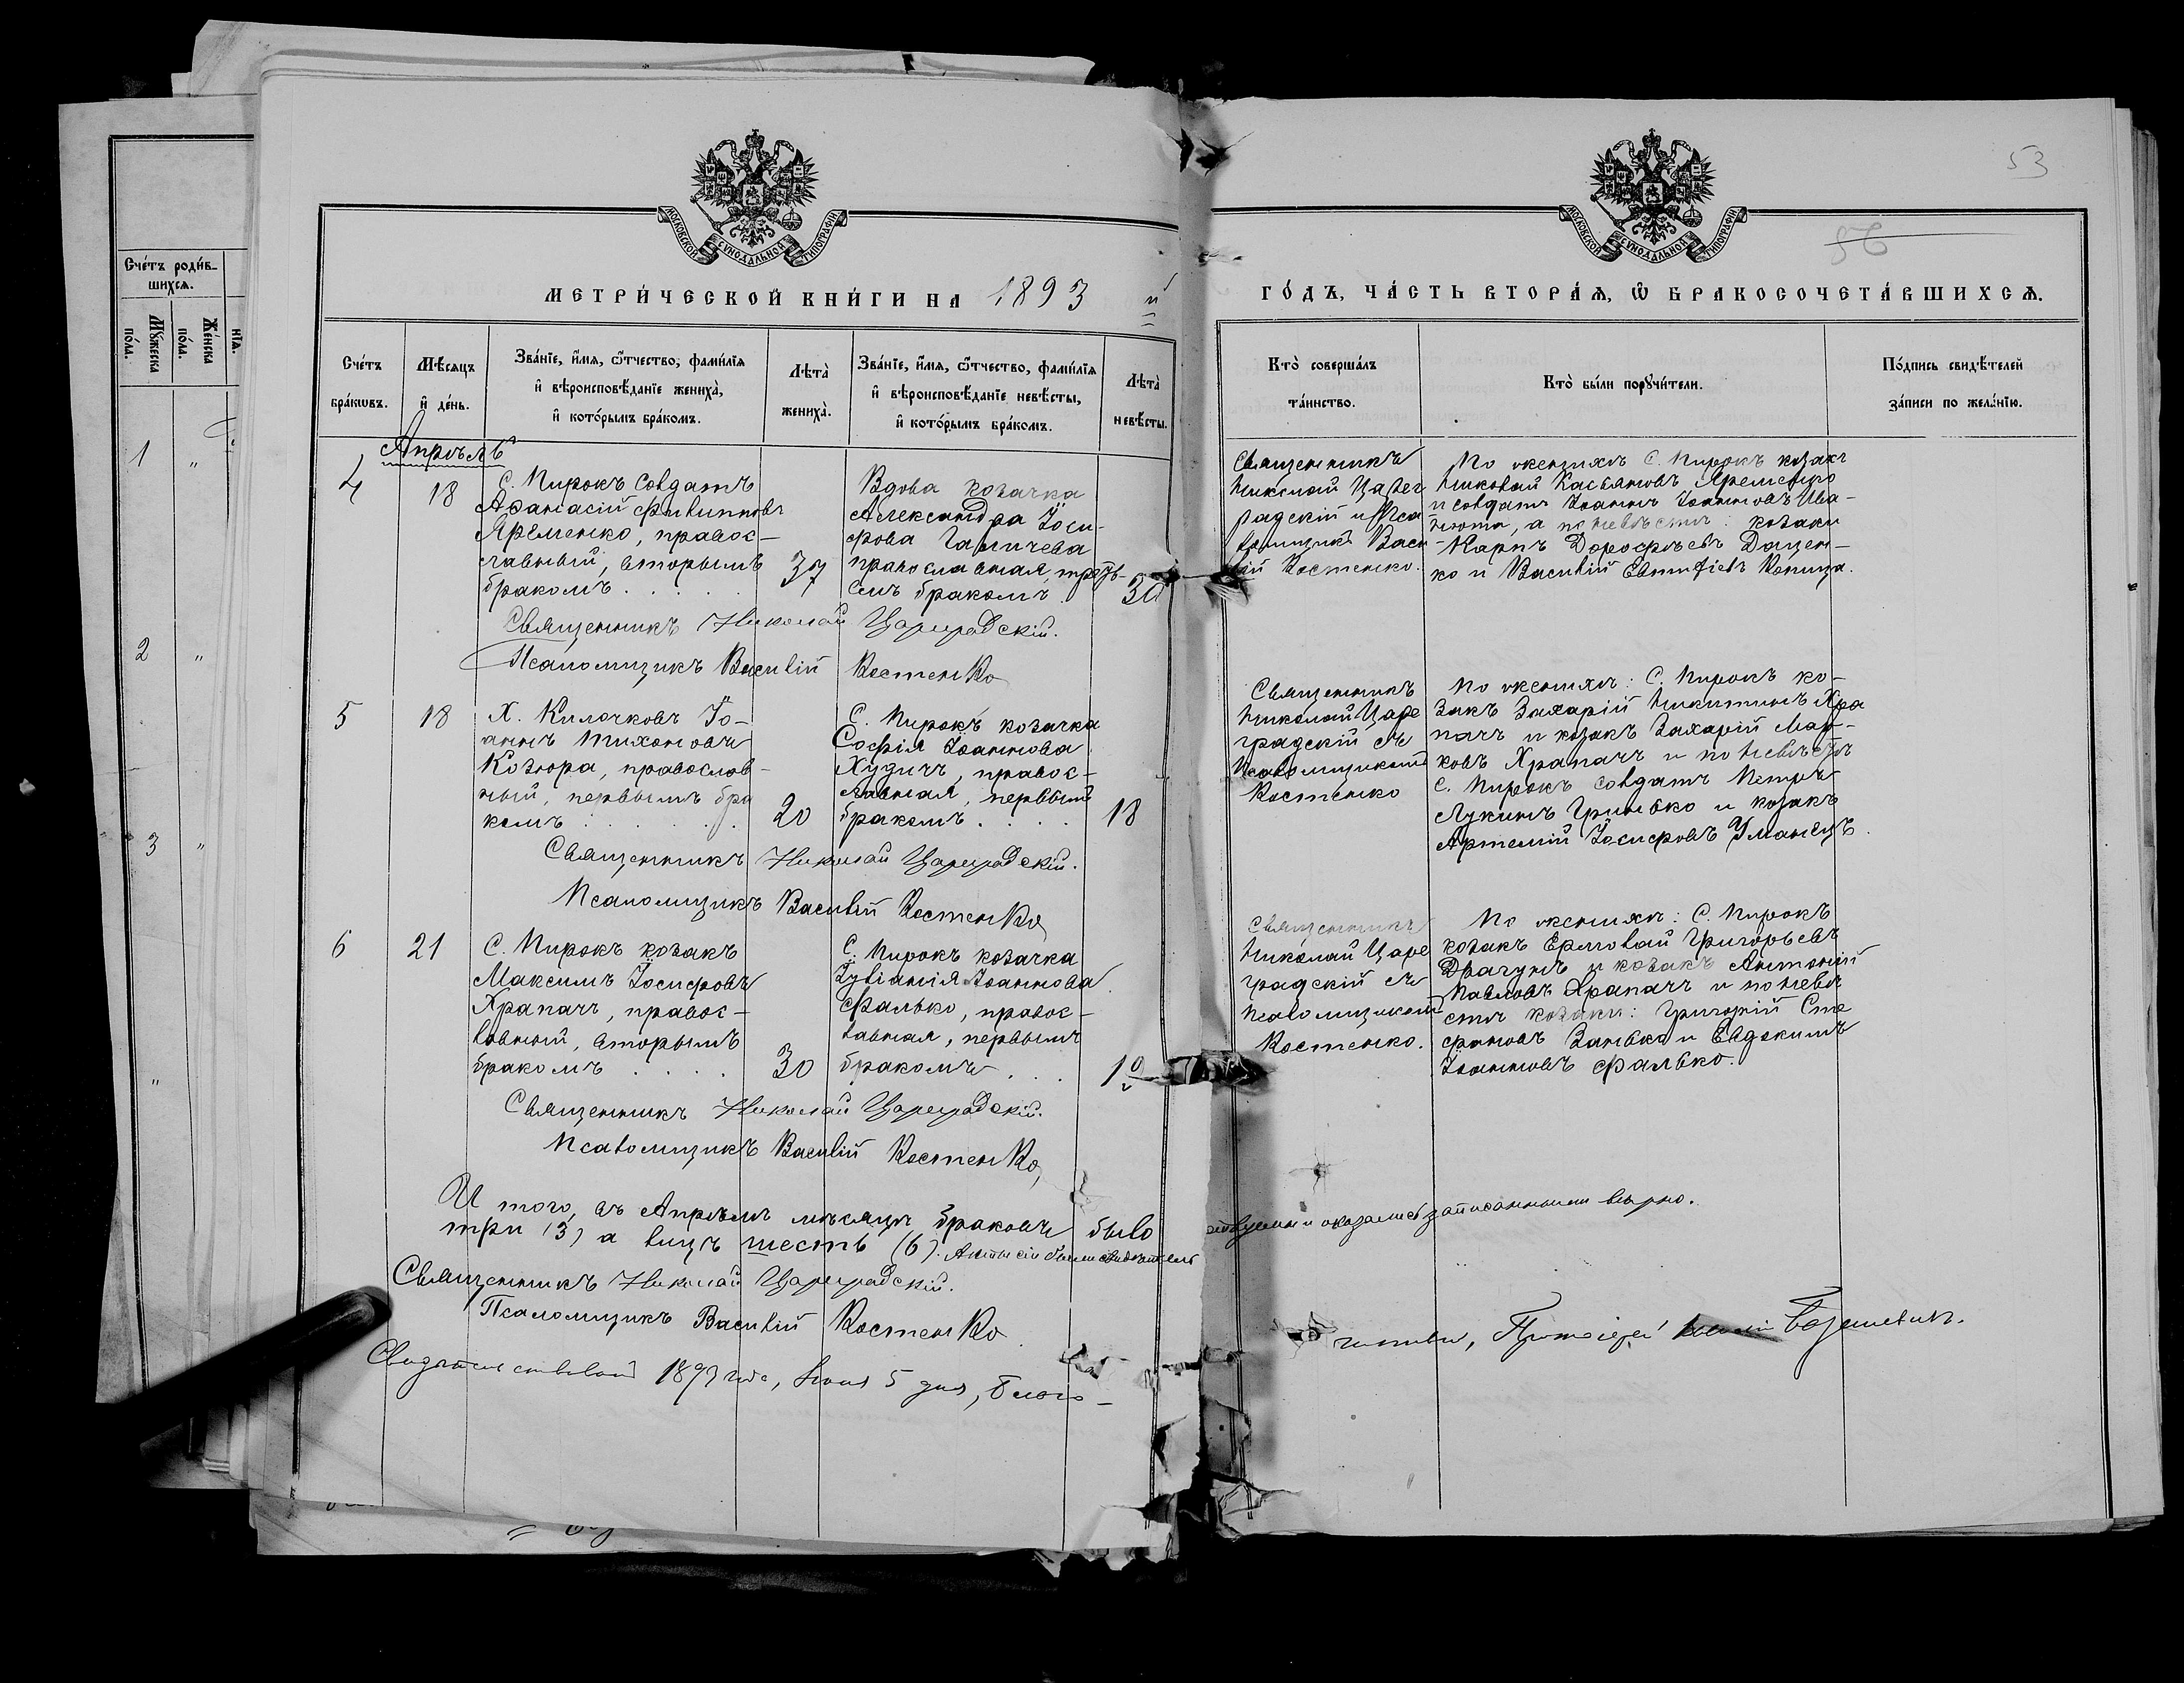 53
56
МОСКОВСКОЙ СѴНОДАЛЬНОЙ ТИПОГРАФІИ
МОСКОВСКОЙ СѴНОДАЛЬНОЙ ТИПОГРАФІИ
МЕТРИ́ЧЕСКОЙ КНИ́ГИ НА 1893
ГО́ДЪ, ЧА́СТЬ ВТОРА́Ѧ, Ѽ БРАКОСОЧЕТА́ВШИХСѦ.
Сче́тъ роди́в-
шихсѧ.
Мꙋ́жеска
по́ла.
Же́нска
по́ла.
1 „
2 „
3 „
„
Сче́тъ
бра́кѡвъ.
Мѣ́сяцъ
и҆ де́нь.
Зва́нїе, и҆́мѧ, ѻ҆́тчество, фами́лїѧ
и҆ вѣроисповѣ́данїе жениха̀,
и҆ кото́рымъ бра́комъ.
Лѣта̀
жениха̀.
Зва́нїе, и҆́мѧ, ѻ҆́тчество, фами́лїѧ
и҆ вѣроисповѣ́данїе невѣ́сты,
и҆ кото́рымъ бра́комъ.
Лѣта̀
невѣ́сты.
Кто̀ соверша́лъ
та́инство.
Кто̀ бы́ли порꙋчи́тели.
По́дпись свидѣ́телей
за́писи по жела́нїю.
Апрѣль
4
18
С. Пирокъ солдатъ
Афанасій Филипповъ
Яременко, правос-
лавный, вторымъ
бракомъ . . . . .
37
Вдова козачка
Александра Іоси-
фова Галичева
православная, треть-
имъ бракомъ .
30
Священникъ
Николай Царег
радскій и Пса
ломщикъ Васи-
лій Костенко.
По женихѣ С. Пирокъ козакъ
Николай Касьяновъ Яременко
и солдатъ Іоаннъ Іоанновъ Ива-
нюта, а по невѣстѣ: козаки
Карпъ Дорофѣевъ Доцен-
ко и Василій Евтифіевъ Копица.
Священникъ Николай Цареградскій.
Псаломщикъ Василій Костенко
5
18
Х. Килочковъ Іо-
аннъ Тихоновъ
Козюра, православ-
ный, первымъ бра
комъ . . . . . .
20
С. Пирокъ козачка
Софія Іоаннова
Худичъ, правос-
лавная, первымъ
бракомъ . . . .
18
Священникъ
Николай Царе
градскій съ
Псаломщикомъ
Костенко
По женихѣ: С. Пирокъ ко-
закъ Захарій Никитинъ Хра
пачъ и козакъ Захарій Мар-
ковъ Храпачъ и по невѣстѣ
С. Пирокъ солдатъ Петръ
Лукинъ Гринько и козакъ
Артемій Іосифовъ Уманецъ.
Священникъ Николай Цареградскій.
Псаломщикъ Василій Костенко
6
21
С. Пирокъ козакъ
Максимъ Іосифовъ
Храпачъ, правос-
лавный, вторымъ
бракомъ . . . .
30
С. Пирокъ козачка
Іуліанія Іоаннова
Фалько, правос-
лавная, первымъ
бракомъ . . .
Священникъ
Николай Царе
градскій съ
Псаломщикомъ
Костенко.
По женихѣ: С. Пирокъ
козакъ Ермолай Григорьевъ
Драгунъ и козакъ Антоній
Павловъ Храпачъ и по невѣ
стѣ козаки: Григорій Сте
фановъ Занько и Евдокимъ
Іоанновъ Фалько.
Священникъ Николай Цареградскій.
Псаломщикъ Василій Костенко,
Итого, въ Апрѣлѣ мѣсяцѣ браковъ было
три (3) а лицъ шесть (6). Акты сіи были свидѣтель
ствуемы и оказались записанными вѣрно.
Священникъ Николай Цареградскій.
Псаломщикъ Василій Костенко
Свидѣтельствовалъ 1893 года, Іюня 5 дня, Благо-
чинный, Протоіерей